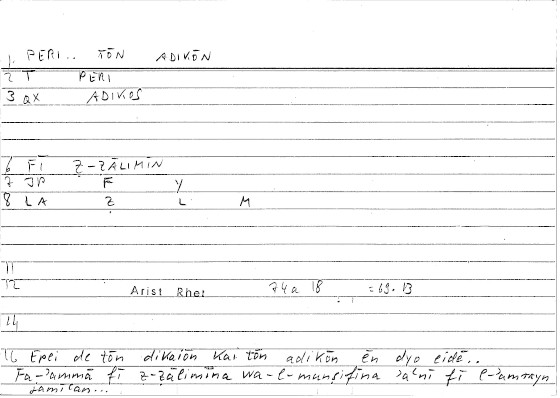 1. PERI.. TŌN ADIKŌN
2 T PERI
3 QX ADIKOS
6 FĪ Ẓ-ẒĀLIMĪN
7 JP F Y
8 LA Ẓ L M
11
12 Arist Rhet 74a 18 = 69.13
14
16 Epei de tōn dikaiōn kai tōn adikōn ēn dyo eidē..
Fa-ʾammā fī ẓ-ẓālimīna wa-l-munṣifīna ʾaʿnī fī l-ʾamrayn
jamīʿan...